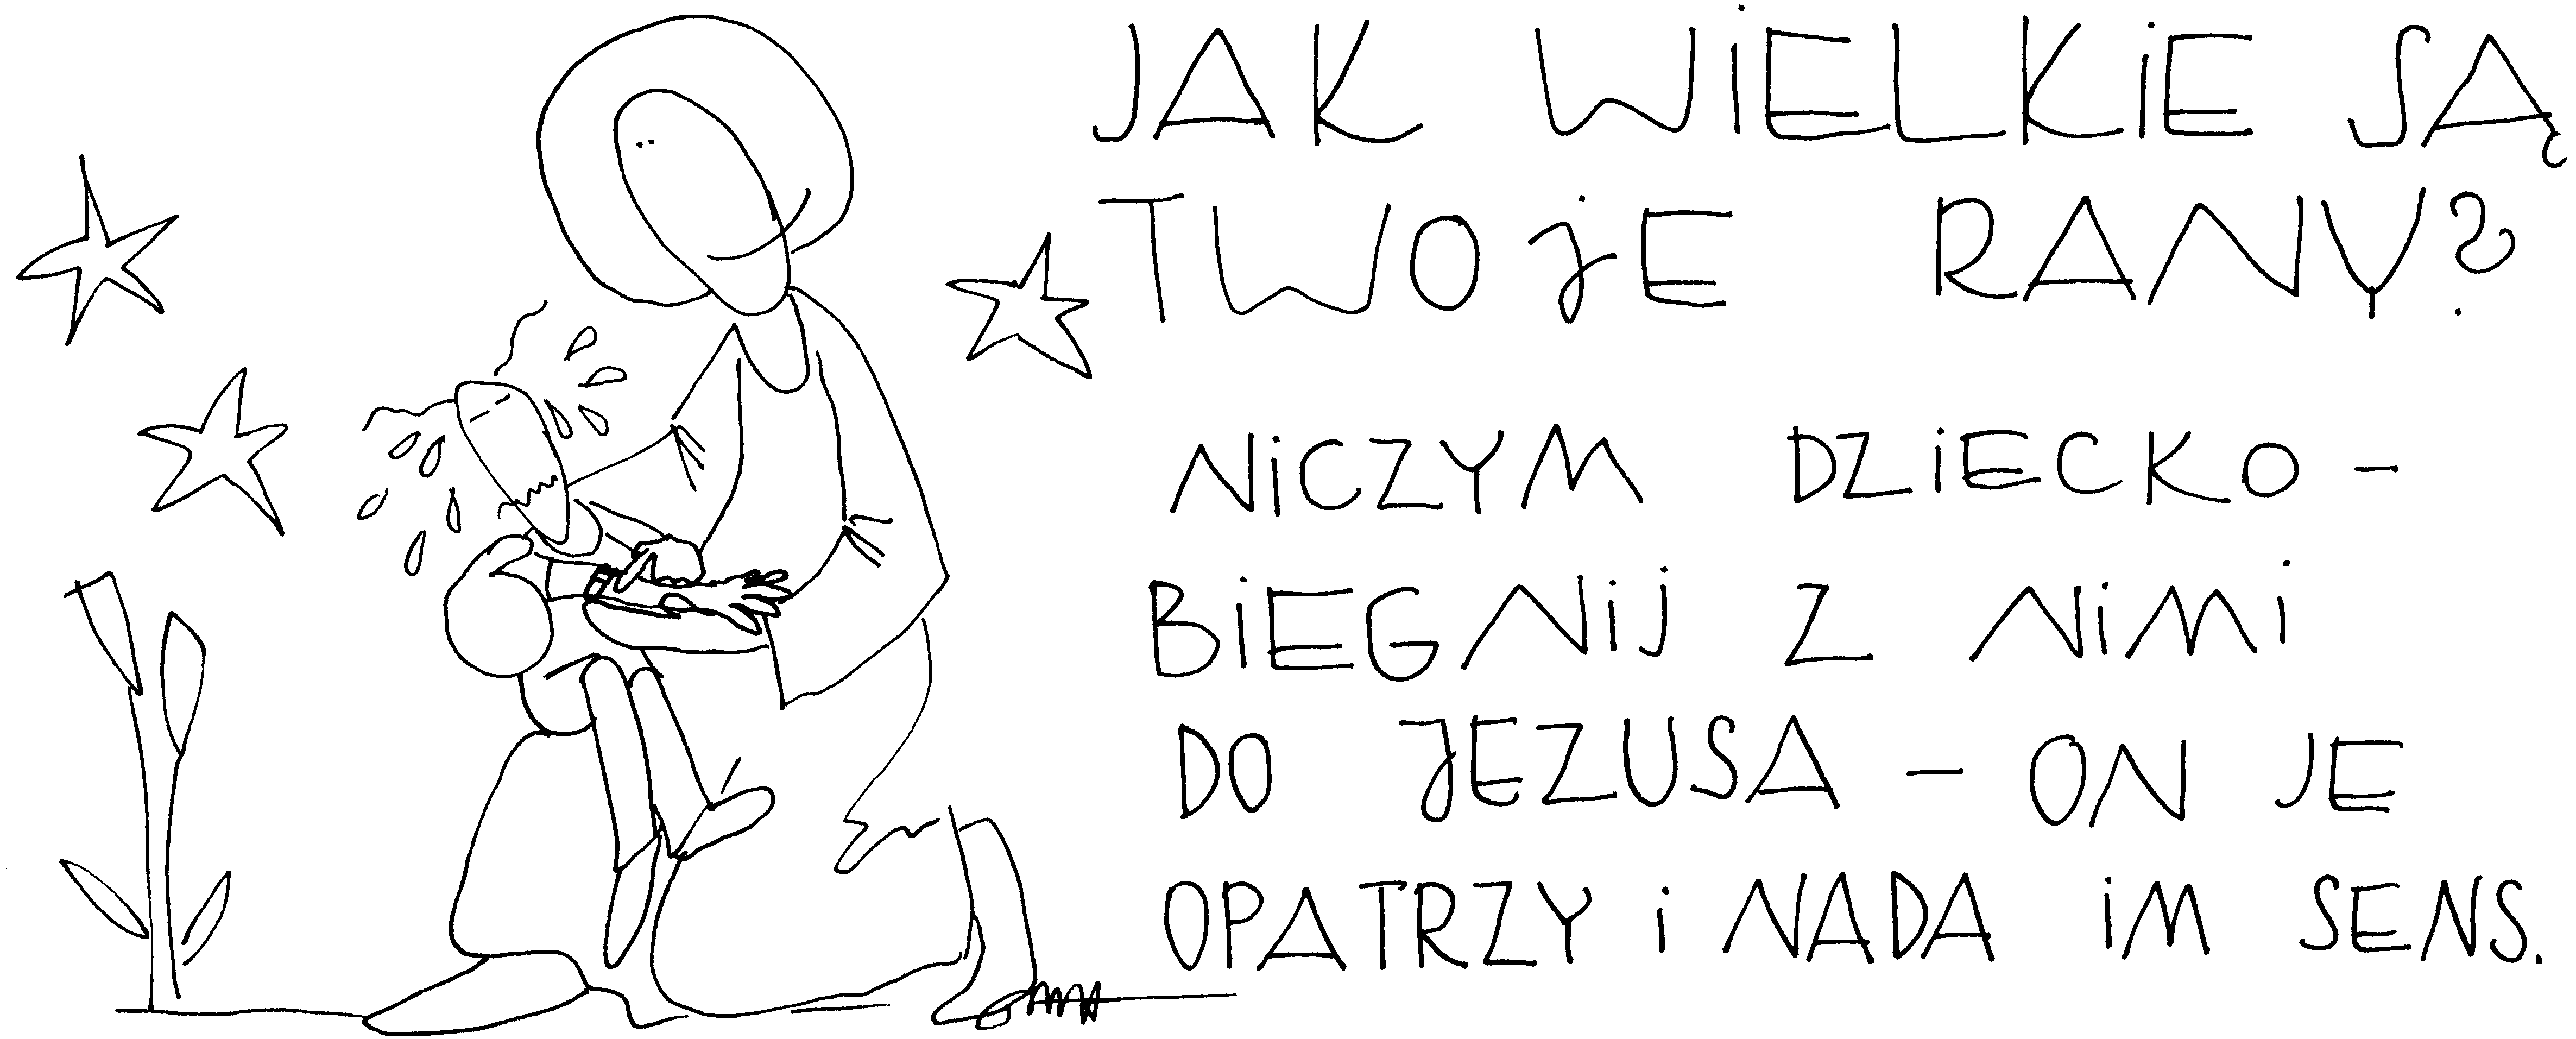 JAK WiELKiE SĄ
TWOjE RANY?
NiCZYM DZiECKO –
BiEGNij Z NiMi
DO JEZUSA – ON JE
OPATRZY i NADA iM SENS.